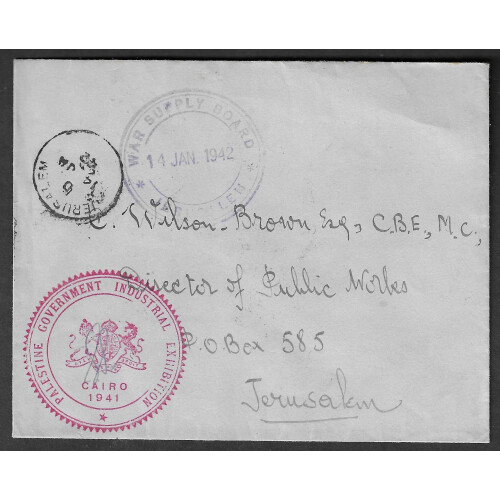 WAR SUPPLY BOARD
14 JAN. 1942
JERUSALEM
C. Wilson-Brown, Esq., C.B.E., M.C.,
Director of Public Works
P.O Box 585
Jerusalem
PALESTINE GOVERNMENT INDUSTRIAL EXHIBITION
CAIRO
1941